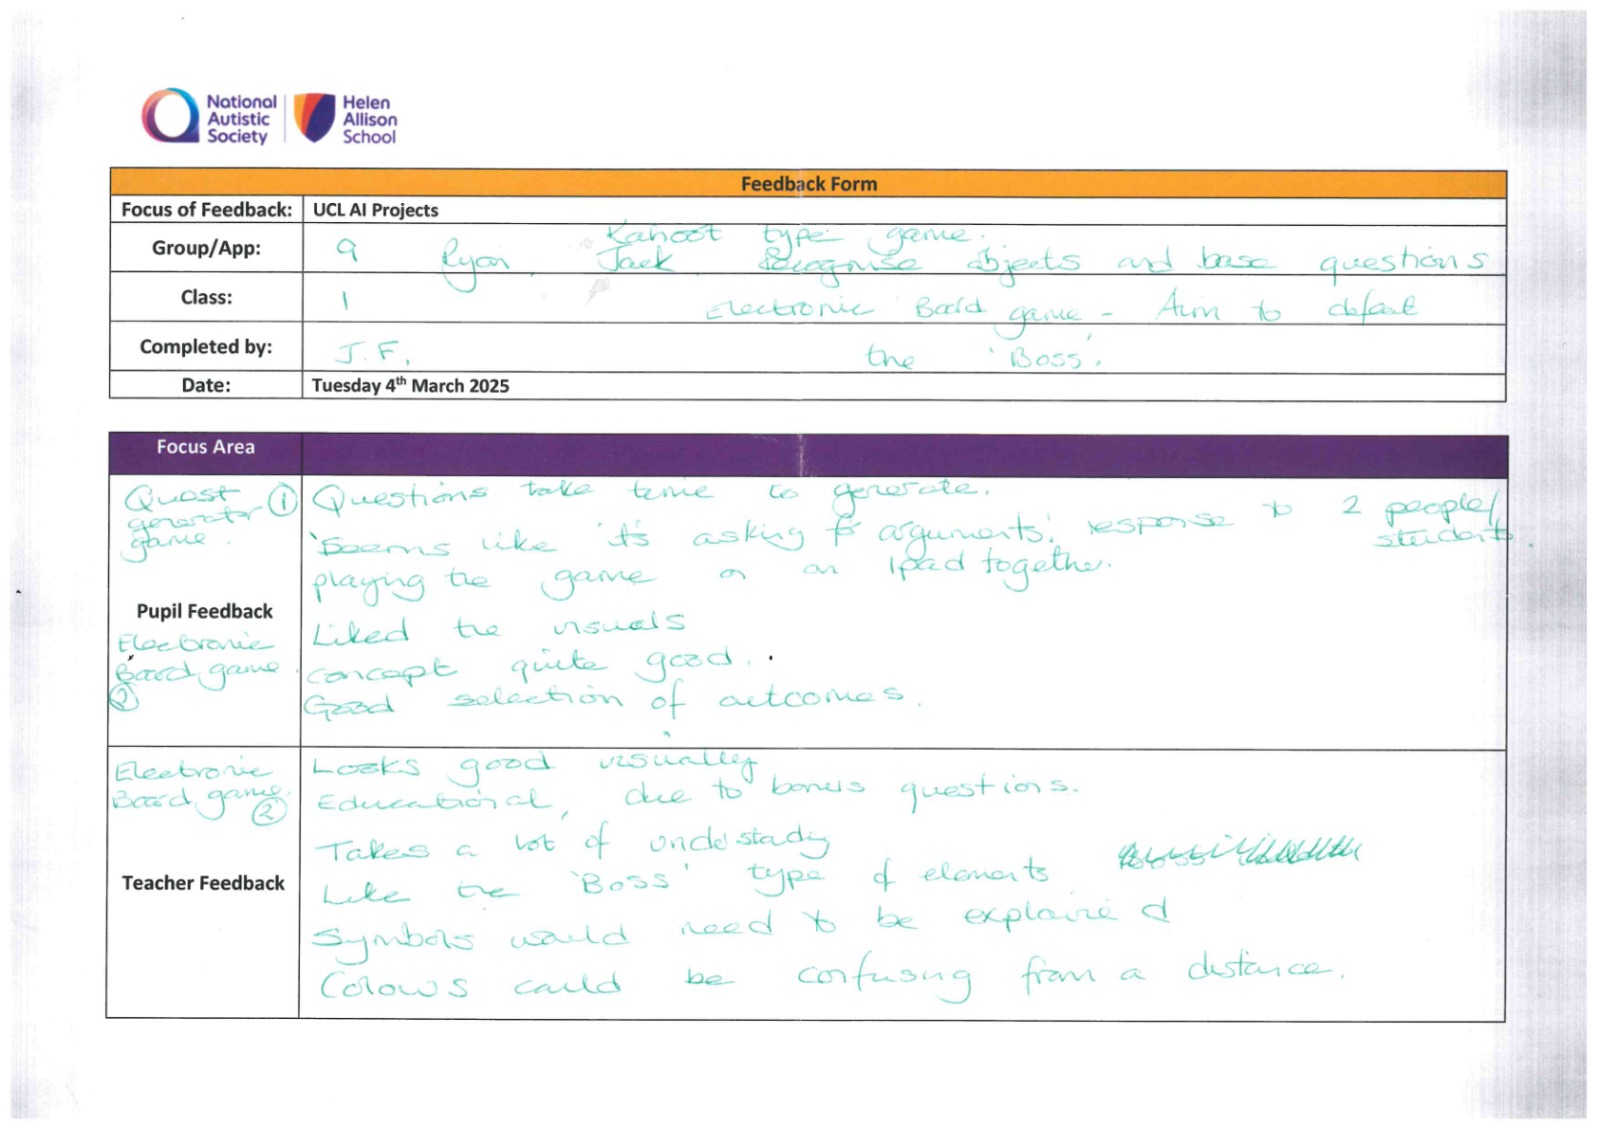 National
Autistic
Society
Helen
Allison
School
Feedback Form
Focus of Feedback: UCL AI Projects
Kahoot type game.
Group/App: 9 Ryan, Jack Recognise objects and base questions
Class: 1 Electronic Board game - Aim to defeat
Completed by: J.F. the 'Boss'.
Date: Tuesday 4th March 2025
Focus Area
Quest ①
generator
game.
Questions take time to generate.
'Seems like it's asking for arguments.' response to 2 people/
students.
playing the game on an Ipad together.
Pupil Feedback
Electronic
Board game
②
Liked the visuals
concept quite good.
Good selection of outcomes.
Electronic
Board game.
②
Looks good visually
Educational, due to bonus questions.
Takes a lot of understadig
Teacher Feedback
Like the 'Boss' type of elements
Symbols would need to be explained
Colours could be confusing from a distance.